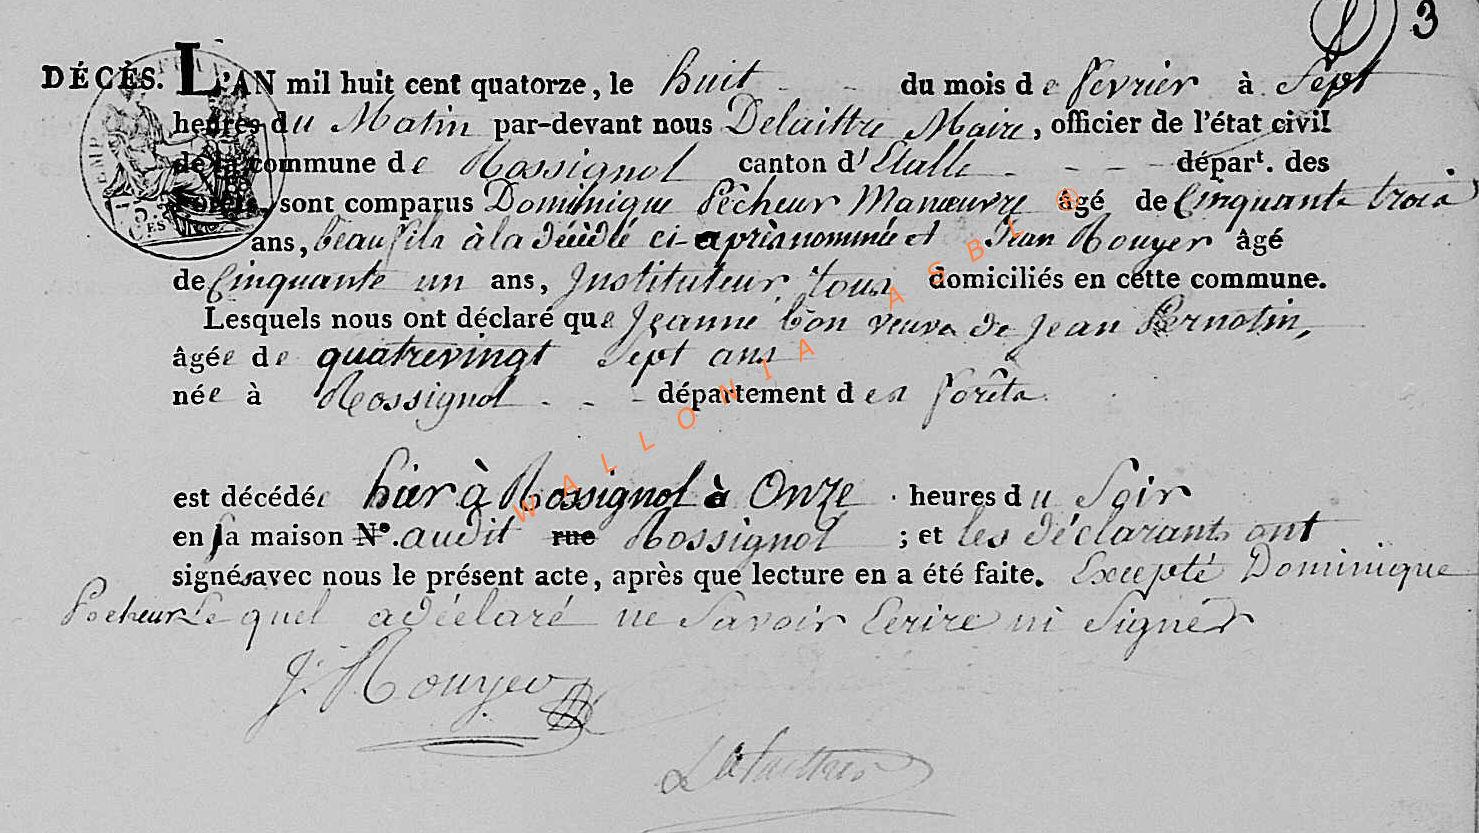 3
DÉCÈS. L'AN mil huit cent quatorze, le huit - - du mois de fevrier à sept
heures du Matin par-devant nous Delaittre Maire, officier de l'état civil
de la commune de Rossignol canton d'Etalle - - - départ. des
Forêts, sont comparus Dominique Pêcheur Manœuvre âgé de Cinquante trois
ans, beau fils à la décédé ci-après nommée et Jean Rouyer âgé
de Cinquante un ans, Instituteur, tous domiciliés en cette commune.
Lesquels nous ont déclaré que Jeanne veuve de Jean Pernotin,
âgée de quatrevingt sept ans
née à Rossignol - - - département des forêts
est décédée hier à Rossignol à Onze heures du Soir
en sa maison N°. audit rue Rossignol ; et les déclarants ont
signés avec nous le présent acte, après que lecture en a été faite. Excepté Dominique
Pecheur Le quel a déclaré ne Savoir Ecrire ni Signer
J. Rouyer
Delaittre
EMP
75
CES
WALLONIA ASBL ©